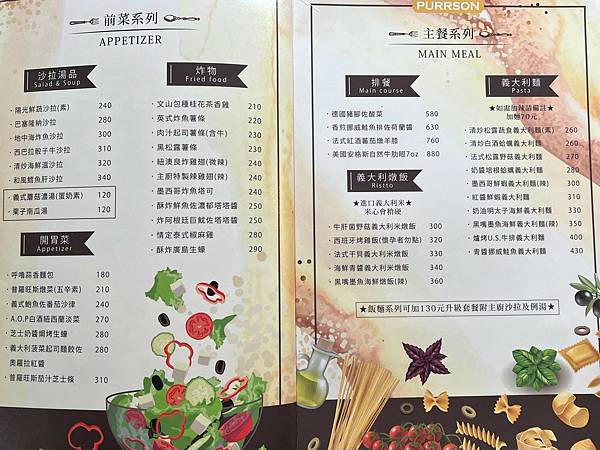 前菜系列
APPETIZER
沙拉湯品
Salad & Soup
・陽光鮮蔬沙拉(素) 240
・巴塞隆納沙拉 280
・地中海炸魚沙拉 300
・西巴拉骰子牛沙拉 310
・清炒海鮮溫沙拉 320
・和風鱈魚肝沙拉 340
・義式蘑菇濃湯(蛋奶素) 120
・栗子南瓜湯 120
開胃菜
Appetizer
・呼嚕蒜香麵包 180
・普羅旺斯燉菜(五辛素) 210
・義式鮑魚佐番茄沙律 240
・A.O.P白酒紐西蘭淡菜 270
・芝士奶醬焗烤生蠔 280
・義大利菠菜起司麵餃佐 280
奧羅拉紅醬
・普羅旺斯茄汁芝士條 310
炸物
Fried food
・文山包種桂花茶香雞 210
・英式炸魚薯條 210
・肉汁起司薯條(含牛) 230
・黑松露薯條 230
・紐澳良炸雞翅(微辣) 240
・主廚特製辣雞翅(辣) 240
・墨西哥炸魚塔可 240
・酥炸鮮魚佐濃郁塔塔醬 250
・炸阿根廷巨魷佐塔塔醬 250
・情定泰式椒麻雞 280
・酥炸廣島生蠔 290
PURRSON
主餐系列
MAIN MEAL
排餐
Main course
・德國豬腳佐酸菜 580
・香煎挪威鮭魚排佐荷蘭醬 630
・法式紅酒蕃茄燉羊膝 760
・美國安格斯自然牛肋眼7oz 880
義大利燉飯
Ristto
★進口義大利米★
米心會稍硬
・牛肝菌野菇義大利米燉飯 300
・西班牙烤雞飯(懷孕者勿點) 320
・法式干貝義大利米燉飯 330
・海鮮青醬義大利米燉飯 340
・黑嘴墨魚海鮮燉飯(辣) 360
義大利麵
Pasta
★如需加辣請備註★
加麵70元
・清炒松露蔬食義大利麵(素) 260
・清炒白酒蛤蠣義大利麵 260
・法式松露野菇義大利麵 270
・奶醬培根蛤蠣義大利麵 280
・墨西哥鮮蝦義大利麵(辣) 300
・紅醬鮮蝦義大利麵 310
・奶油明太子海鮮義大利麵 330
・黑嘴墨魚海鮮義大利麵(辣) 350
・爐烤U.S.牛排義大利麵 400
・青醬挪威鮭魚義大利麵 430
★飯麵系列可加130元升級套餐附主廚沙拉及例湯★